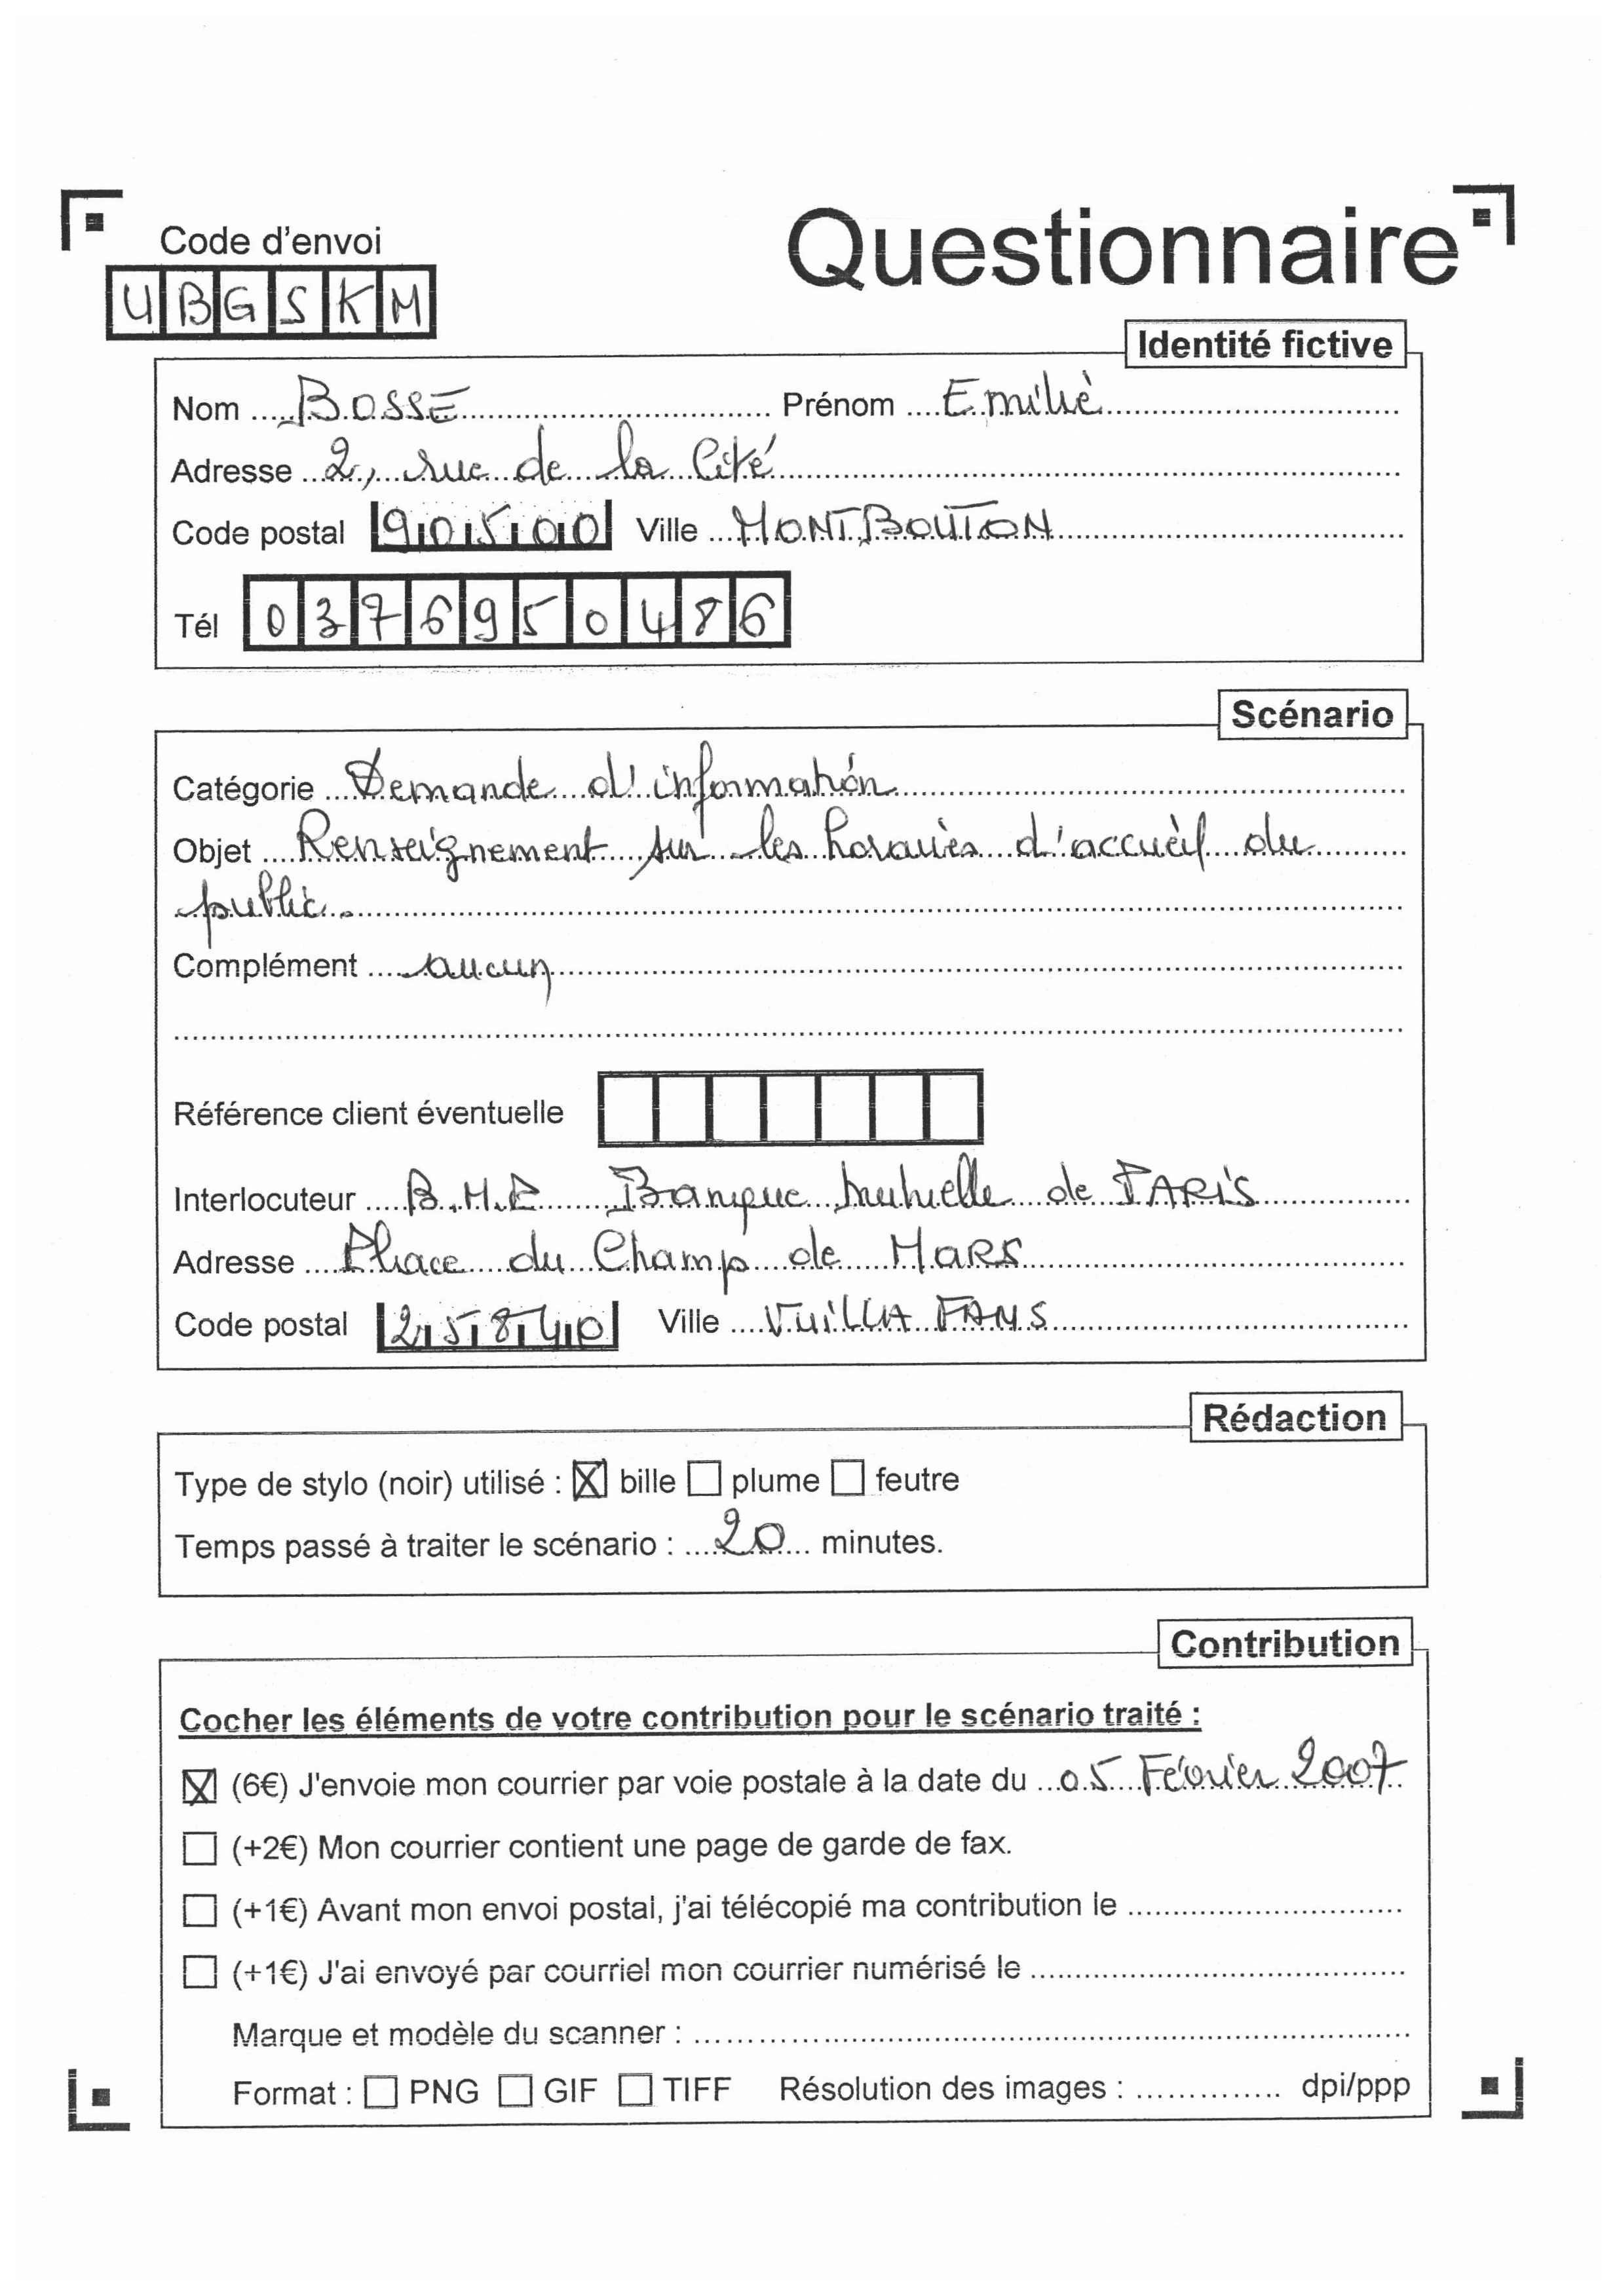 Code d'envoi
Questionnaire
UBGSKM
Identité fictive
Nom BOSSE Prénom Emilie
Adresse 2, rue de la Cité
Code postal 90500 Ville MONTBOUTON
Tél 0376950486
Scénario
Catégorie Demande d'information
Objet Renseignement sur les horaires d'accueil du
public.
Complément aucun
Référence client éventuelle
Interlocuteur B.M.P Banque mutuelle de PARIS
Adresse Place du Champ de MARS
Code postal 25840 Ville VUILLAFANS
Rédaction
Type de stylo (noir) utilisé : ☒ bille ☐ plume ☐ feutre
Temps passé à traiter le scénario : 20 minutes.
Contribution
Cocher les éléments de votre contribution pour le scénario traité :
☒ (6€) J'envoie mon courrier par voie postale à la date du 05 Février 2007
☐ (+2€) Mon courrier contient une page de garde de fax.
☐ (+1€) Avant mon envoi postal, j'ai télécopié ma contribution le
☐ (+1€) J'ai envoyé par courriel mon courrier numérisé le
Marque et modèle du scanner :
Format : ☐ PNG ☐ GIF ☐ TIFF Résolution des images : dpi/ppp